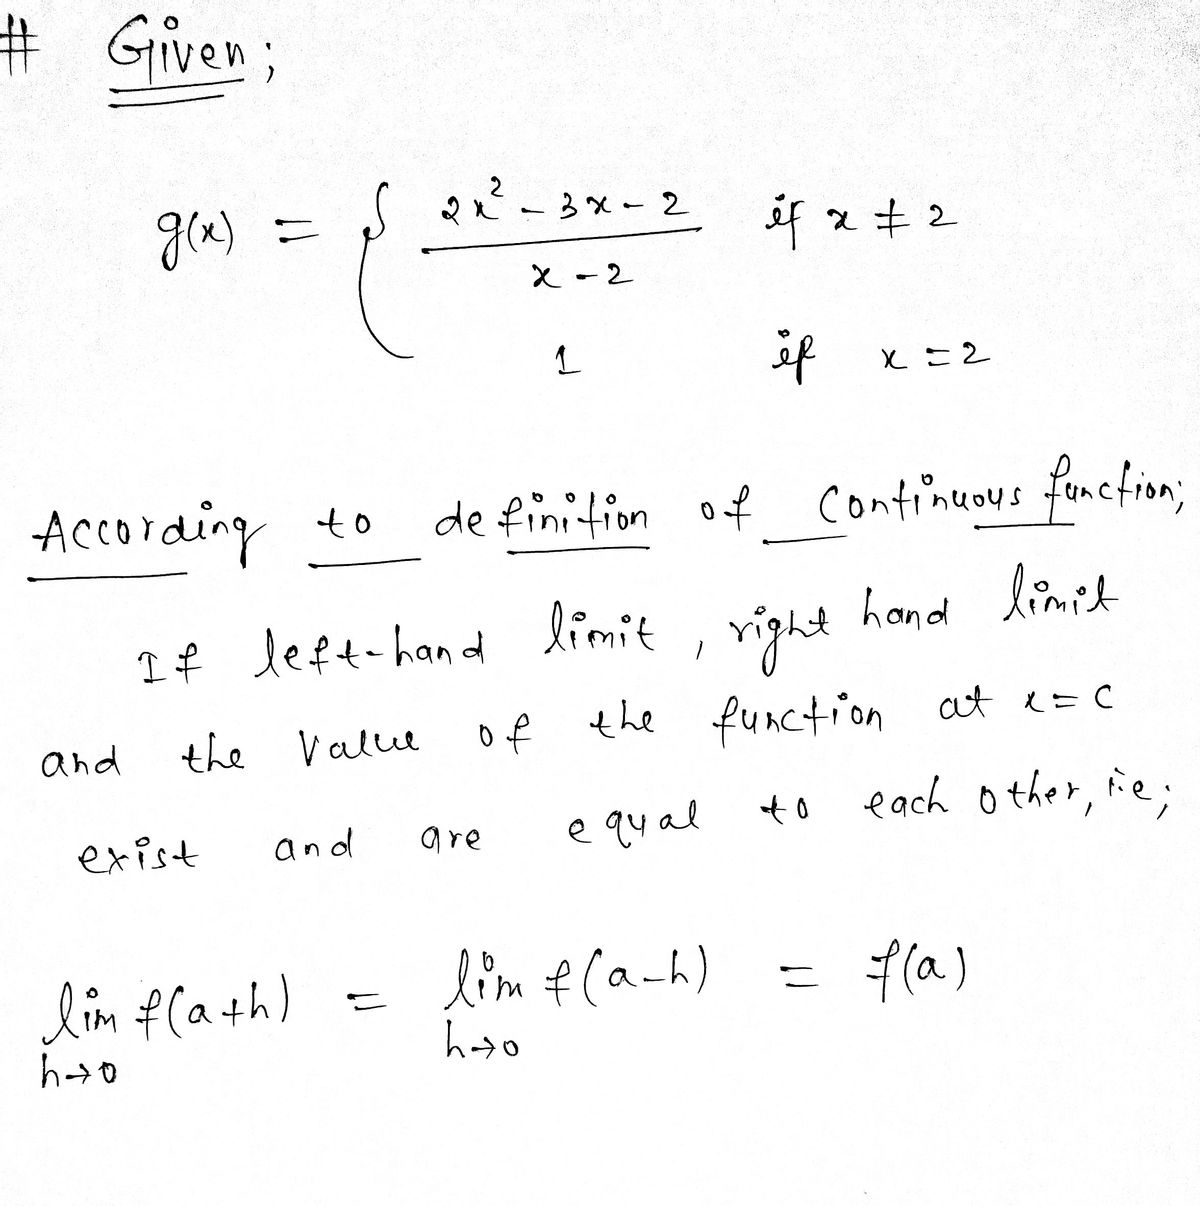 # Given;
g(x) = { 2x² - 3x - 2 if x ≠ 2
x - 2
1 if x = 2
According to definition of continuous function;
If left-hand limit, right hand limit
and the value of the function at x = c
exist and are equal to each other, i.e;
lim f(a+h) = lim f(a-h) = f(a)
h→0 h→0